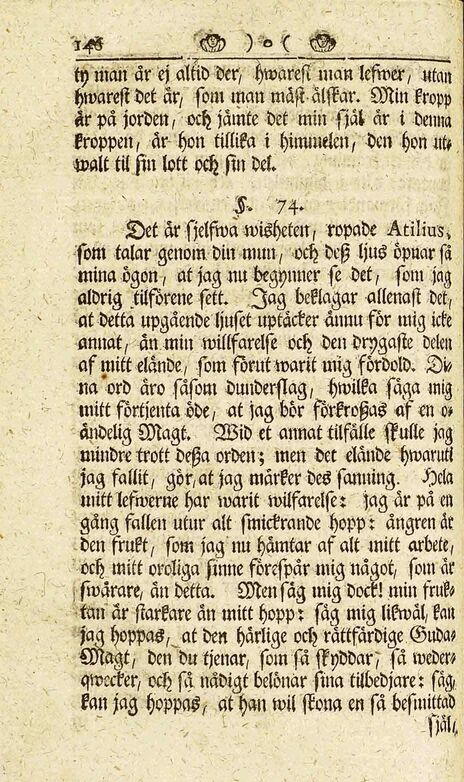 146 ) o (
ty man är ej altid der, hwarest man lefwer, utan
hwarest det är, som man mäst älskar. Min kropp
är på jorden, och jämte det min själ är i denna
kroppen, är hon tillika i himmelen, den hon ut-
walt til sin lott och sin del.
§. 74.
Det är sjelfwa wisheten, ropade Atilius,
som talar genom din mun, och deß ljus öpnar så
mina ögon, at jag nu begynner se det, som jag
aldrig tilförene sett. Jag beklagar allenast det,
at detta upgående ljuset uptäcker ännu för mig icke
annat, än min willfarelse och den drygaste delen
af mitt elände, som förut warit mig fördold. Di-
na ord äro såsom dunderslag, hwilka säga mig
mitt förtjenta öde, at jag bör förkroßas af en o-
ändelig Magt. Wid et annat tilfälle skulle jag
mindre trott deßa orden; men det elände hwaruti
jag fallit, gör, at jag märker des sanning. Hela
mitt lefwerne har warit wilfarelse: jag är på en
gång fallen utur alt smickrande hopp: ångren är
den frukt, som jag nu hämtar af alt mitt arbete,
och mitt oroliga sinne förespår mig något, som är
swårare, än detta. Men säg mig dock! min fruk-
tan är starkare än mitt hopp: säg mig likwäl, kan
jag hoppas, at den härlige och rättfärdige Guda-
Magt, den du tjenar, som så skyddar, så weder-
qwecker, och så nådigt belönar sina tilbedjare: säg,
kan jag hoppas, at han wil skona en så besmittad
själ,